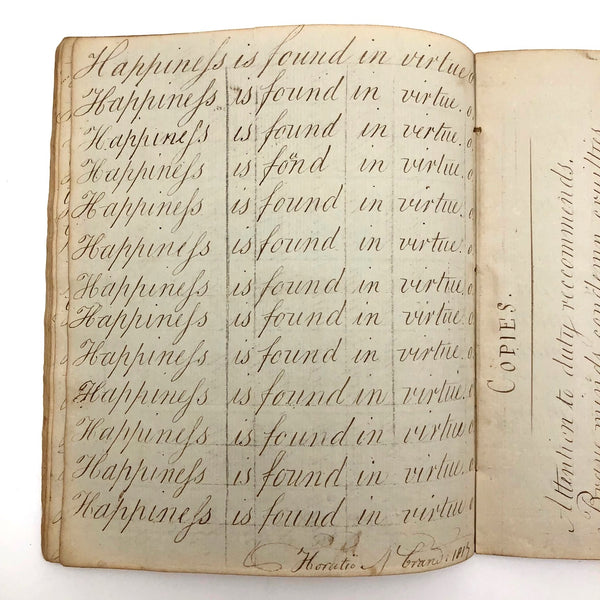 Happiness is found in virtue
Happiness is found in virtue. o
Happiness is found in virtue. o
Happiness is fond in virtue. o
Happiness is found in virtue. o
Happiness is found in virtue. o
Happiness is found in virtue. o
Happiness is found in virtue. o
Happiness is found in virtue. o
Happiness is found in virtue. o
Happiness is found in virtue. o
Happiness is found in virtue. o
Happiness is found in virtue. o
Horatio N
COPIES.
Attention to duty reccommends.
Brave minds condemn cruelties